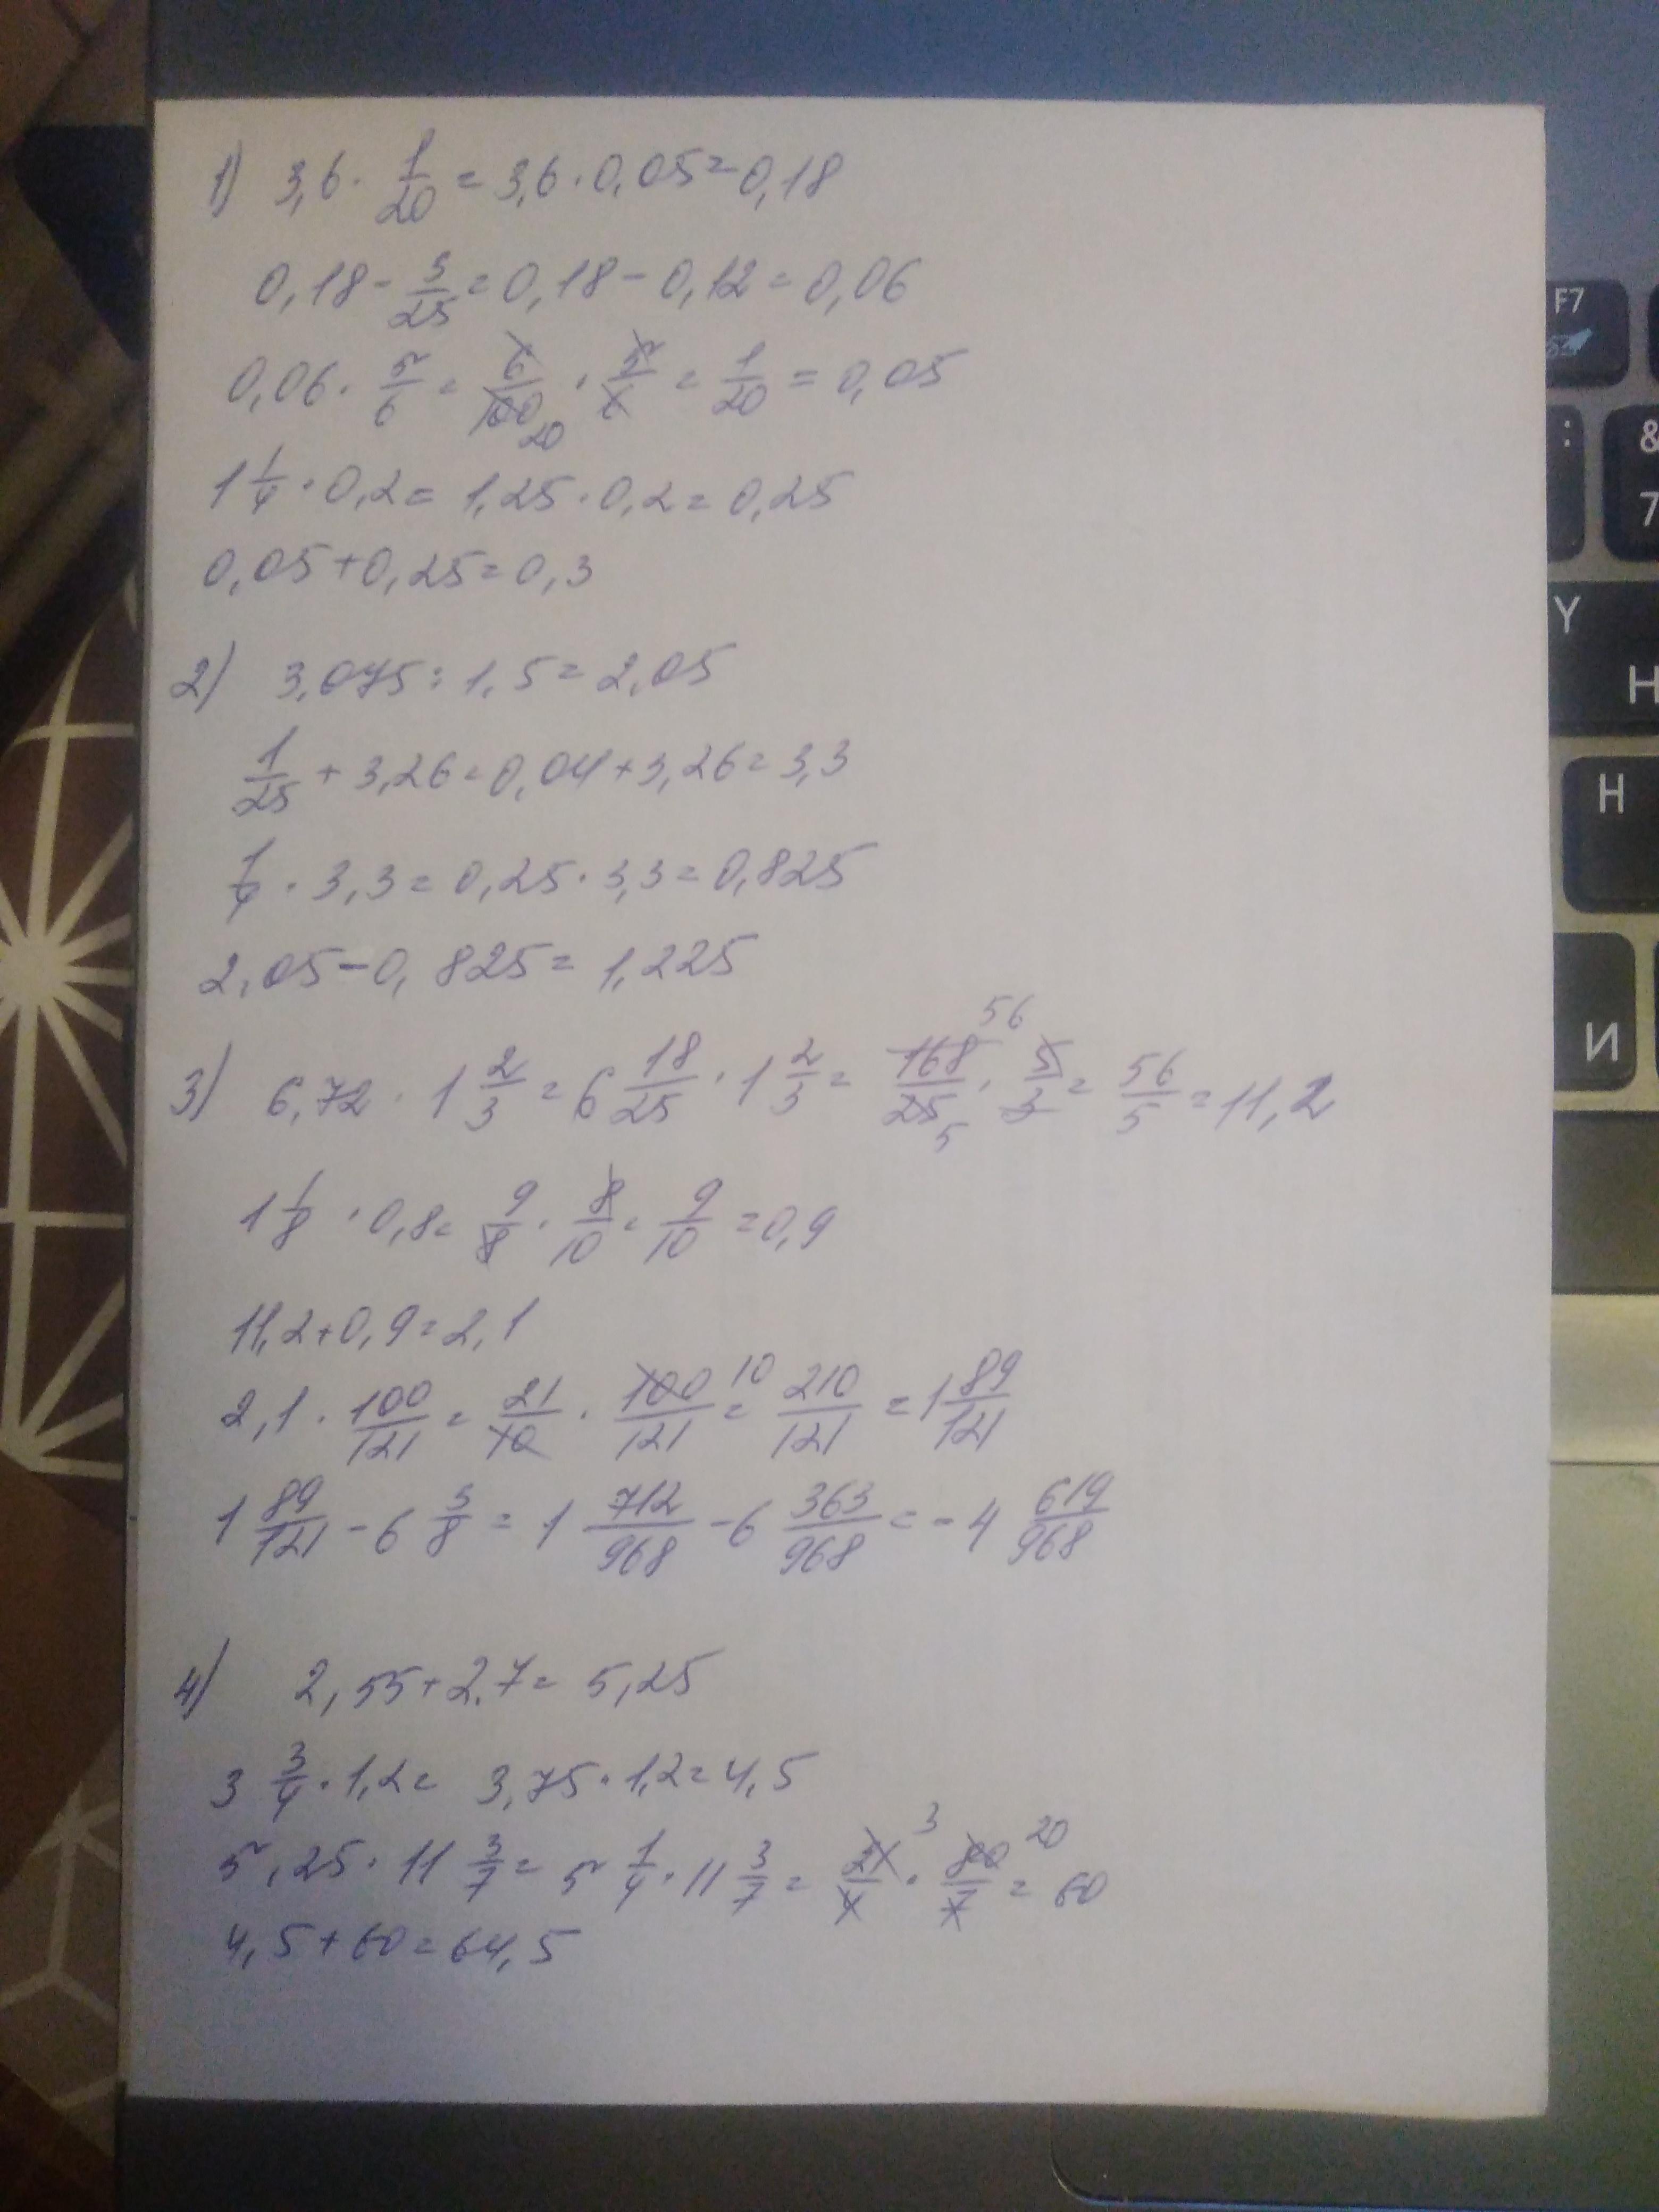 1) 3,6 · 1/20 = 3,6 · 0,05 = 0,18
0,18 - 3/25 = 0,18 - 0,12 = 0,06
0,06 · 5/6 = 6/100 20 · 5/6 = 1/20 = 0,05
1 1/4 · 0,2 = 1,25 · 0,2 = 0,25
0,05 + 0,25 = 0,3
2) 3,075 : 1,5 = 2,05
1/25 + 3,26 = 0,04 + 3,26 = 3,3
1/4 · 3,3 = 0,25 · 3,3 = 0,825
2,05 - 0,825 = 1,225
3) 6,72 · 1 2/3 = 6 18/25 · 1 2/3 = 168 56/25 5 · 5/3 = 56/5 = 11,2
1 1/8 · 0,8 = 9/8 · 8/10 = 9/10 = 0,9
11,2 + 0,9 = 2,1
2,1 · 100/121 = 21/10 · 100 10/121 = 210/121 = 1 89/121
1 89/121 - 6 3/8 = 1 712/968 - 6 363/968 = - 4 619/968
4) 2,55 + 2.7 = 5,25
3 3/4 · 1,2 = 3,75 · 1,2 = 4,5
5,25 · 11 3/7 = 5 1/4 · 11 3/7 = 21 3/4 · 80 20/7 = 60
4,5 + 60 = 64,5
F7
:
&
7
Y
Н
H
И